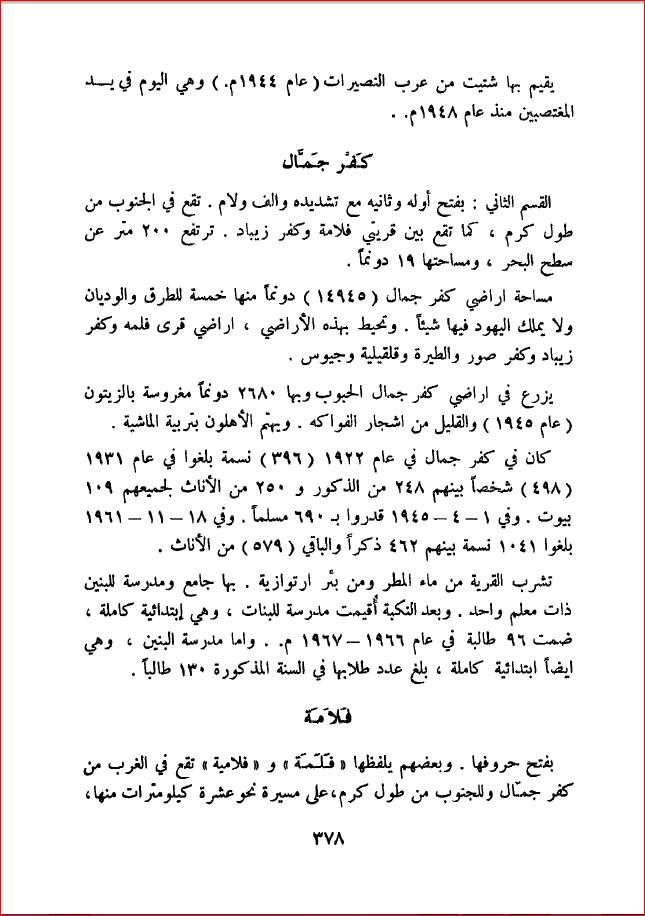 يقيم بها شتيت من عرب النصيرات ( عام ١٩٤٤م. ) وهي اليوم في يــد
المغتصبين منذ عام ١٩٤٨م. .
كَفْر جَمَّال
القسم الثاني : بفتح أوله وثانيه مع تشديده والف ولام . تقع في الجنوب من
طول كرم ، كما تقع بين قريتي فلامة وكفر زيباد . ترتفع ٢٠٠ متر عن
سطح البحر ، ومساحتها ١٩ دونماً .
مساحة اراضي كفر جمال ( ١٤٩٤٥ ) دونماً منها خمسة للطرق والوديان
ولا يملك اليهود فيها شيئاً . وتحيط بهذه الأراضي ، اراضي قرى فلمه وكفر
زيباد وكفر صور والطيرة وقلقيلية وجيوس .
يزرع في اراضي كفر جمال الحبوب وبها ٢٦٨٠ دونماً مغروسة بالزيتون
( عام ١٩٤٥ ) والقليل من اشجار الفواكه . ويهتم الأهلون بتربية الماشية .
كان في كفر جمال في عام ١٩٢٢ ( ٣٩٦ ) نسمة بلغوا في عام ١٩٣١
( ٤٩٨ ) شخصاً بينهم ٢٤٨ من الذكور و ٢٥٠ من الأناث لجميعهم ١٠٩
بيوت . وفي ١ – ٤ – ١٩٤٥ قدروا بـ ٦٩٠ مسلماً . وفي ١٨ – ١١ – ١٩٦١
بلغوا ١٠٤١ نسمة بينهم ٤٦٢ ذكراً والباقي ( ٥٧٩ ) من الأناث .
تشرب القرية من ماء المطر ومن بئر ارتوازية . بها جامع ومدرسة للبنين
ذات معلم واحد . وبعد النكبة أُقيمت مدرسة للبنات ، وهي إبتدائية كاملة ،
ضمت ٩٦ طالبة في عام ١٩٦٦ – ١٩٦٧ م. . واما مدرسة البنين ، وهي
ايضاً ابتدائية كاملة ، بلغ عدد طلابها في السنة المذكورة ١٣٠ طالباً .
فَلاَمَة
بفتح حروفها . وبعضهم يلفظها « فَلَمَة » و « فلامية » تقع في الغرب من
كفر جمّال وللجنوب من طول كرم،على مسيرة نحو عشرة كيلومترات منها،
٣٧٨